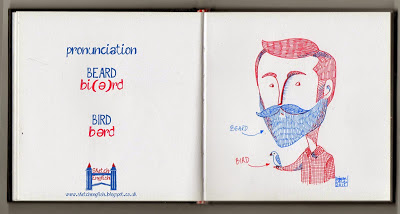 pronunciation
BEARD
bi(ə)rd
BIRD
bərd
Sketch
English
www.sketchenglish.blogspot.co.uk
BEARD
BIRD